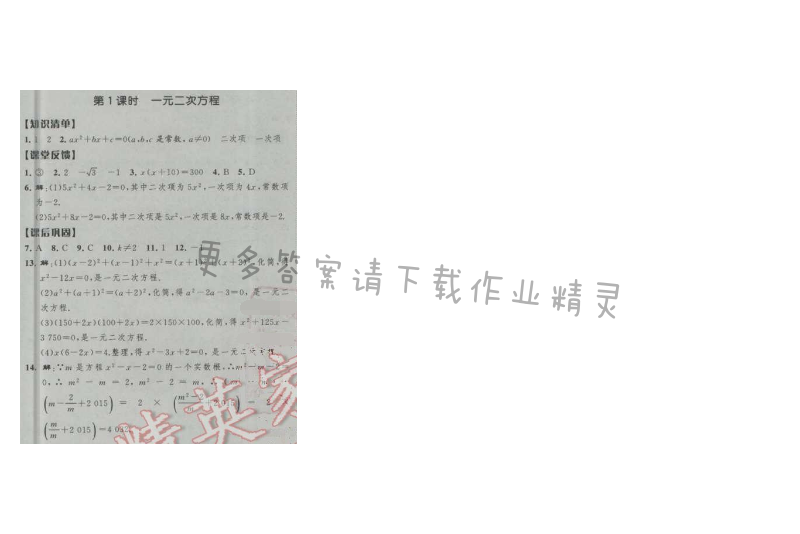 第1课时 一元二次方程
【知识清单】
1. 1 2 2. ax²+bx+c=0(a,b,c 是常数, a≠0) 二次项 一次项
【课堂反馈】
1. ③ 2. 2 -√3 -1 3. x(x+10)=300 4. B 5. D
6. 解:(1)5x²+4x-2=0,其中二次项为 5x²,一次项为 4x,常数项
为-2.
(2)5x²+8x-2=0,其中二次项是 5x²,一次项是 8x,常数项是-2.
【课后巩固】
7. A 8. C 9. C 10. k≠2 11. 1 12.
13. 解:(1)(x-2)²+(x-1)²+x²=(x+1)²+(x+2)²,化简,得
x²-12x=0,是一元二次方程.
(2)a²+(a+1)²=(a+2)²,化简,得 a²-2a-3=0, 是一元二
次方程.
(3)(150+2x)(100+2x)=2×150×100,化简,得 x²+125x-
3 750=0,是一元二次方程.
(4)x(6-2x)=4,整理,得 x²-3x+2=0, 是一元二次方程.
14. 解:∵m 是方程 x²-x-2=0 的一个实数根,∴m²-m-2=
0,∴ m² - m = 2, m² - 2 = m, ∴
(m-2/m+2 015) = 2 × ((m²-2)/m+2 015) = 2 ×
(m/m+2 015)=4 032.
更多答案请下载作业精灵
精英家